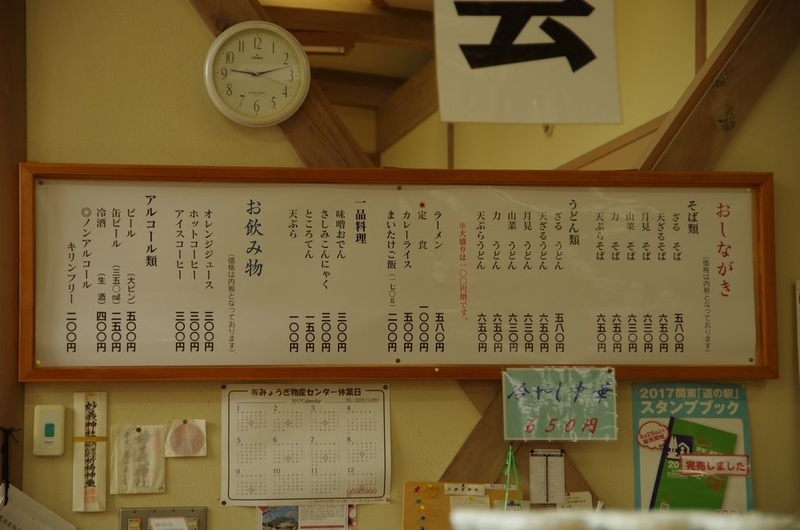 おしながき
(価格は内税となっております)
そば類
ざる そば 五八〇円
天ざるそば 六五〇円
月見 そば 六三〇円
山菜 そば 六三〇円
力 そば 六五〇円
天ぷらそば 六五〇円
うどん類
ざる うどん 五八〇円
天ざるうどん 六五〇円
月見 うどん 六三〇円
山菜 うどん 六三〇円
力 うどん 六五〇円
天ぷらうどん 六五〇円
※大盛りは一〇〇円増です。
ラーメン 五八〇円
定 食 一〇〇〇円
カレーライス 五〇〇円
まいたけご飯(一七〇g) 二〇〇円
一品料理
味噌おでん 三〇〇円
さしみこんにゃく
ところてん 一五〇円
天ぷら 一〇〇円
お飲み物
(価格は内税となっております)
オレンジジュース 三〇〇円
ホットコーヒー 三〇〇円
アイスコーヒー 三〇〇円
アルコール類
ビール (大ビン) 五〇〇円
缶ビール (三五〇㎖) 二五〇円
冷酒 (生 酒) 四〇〇円
◎ノンアルコール
キリンフリー 二〇〇円
みょうぎ物産センター休業日
2017Calendar
冷やし中華
650円
2017関東「道の駅」
スタンプブック
完売しました
妙義神社